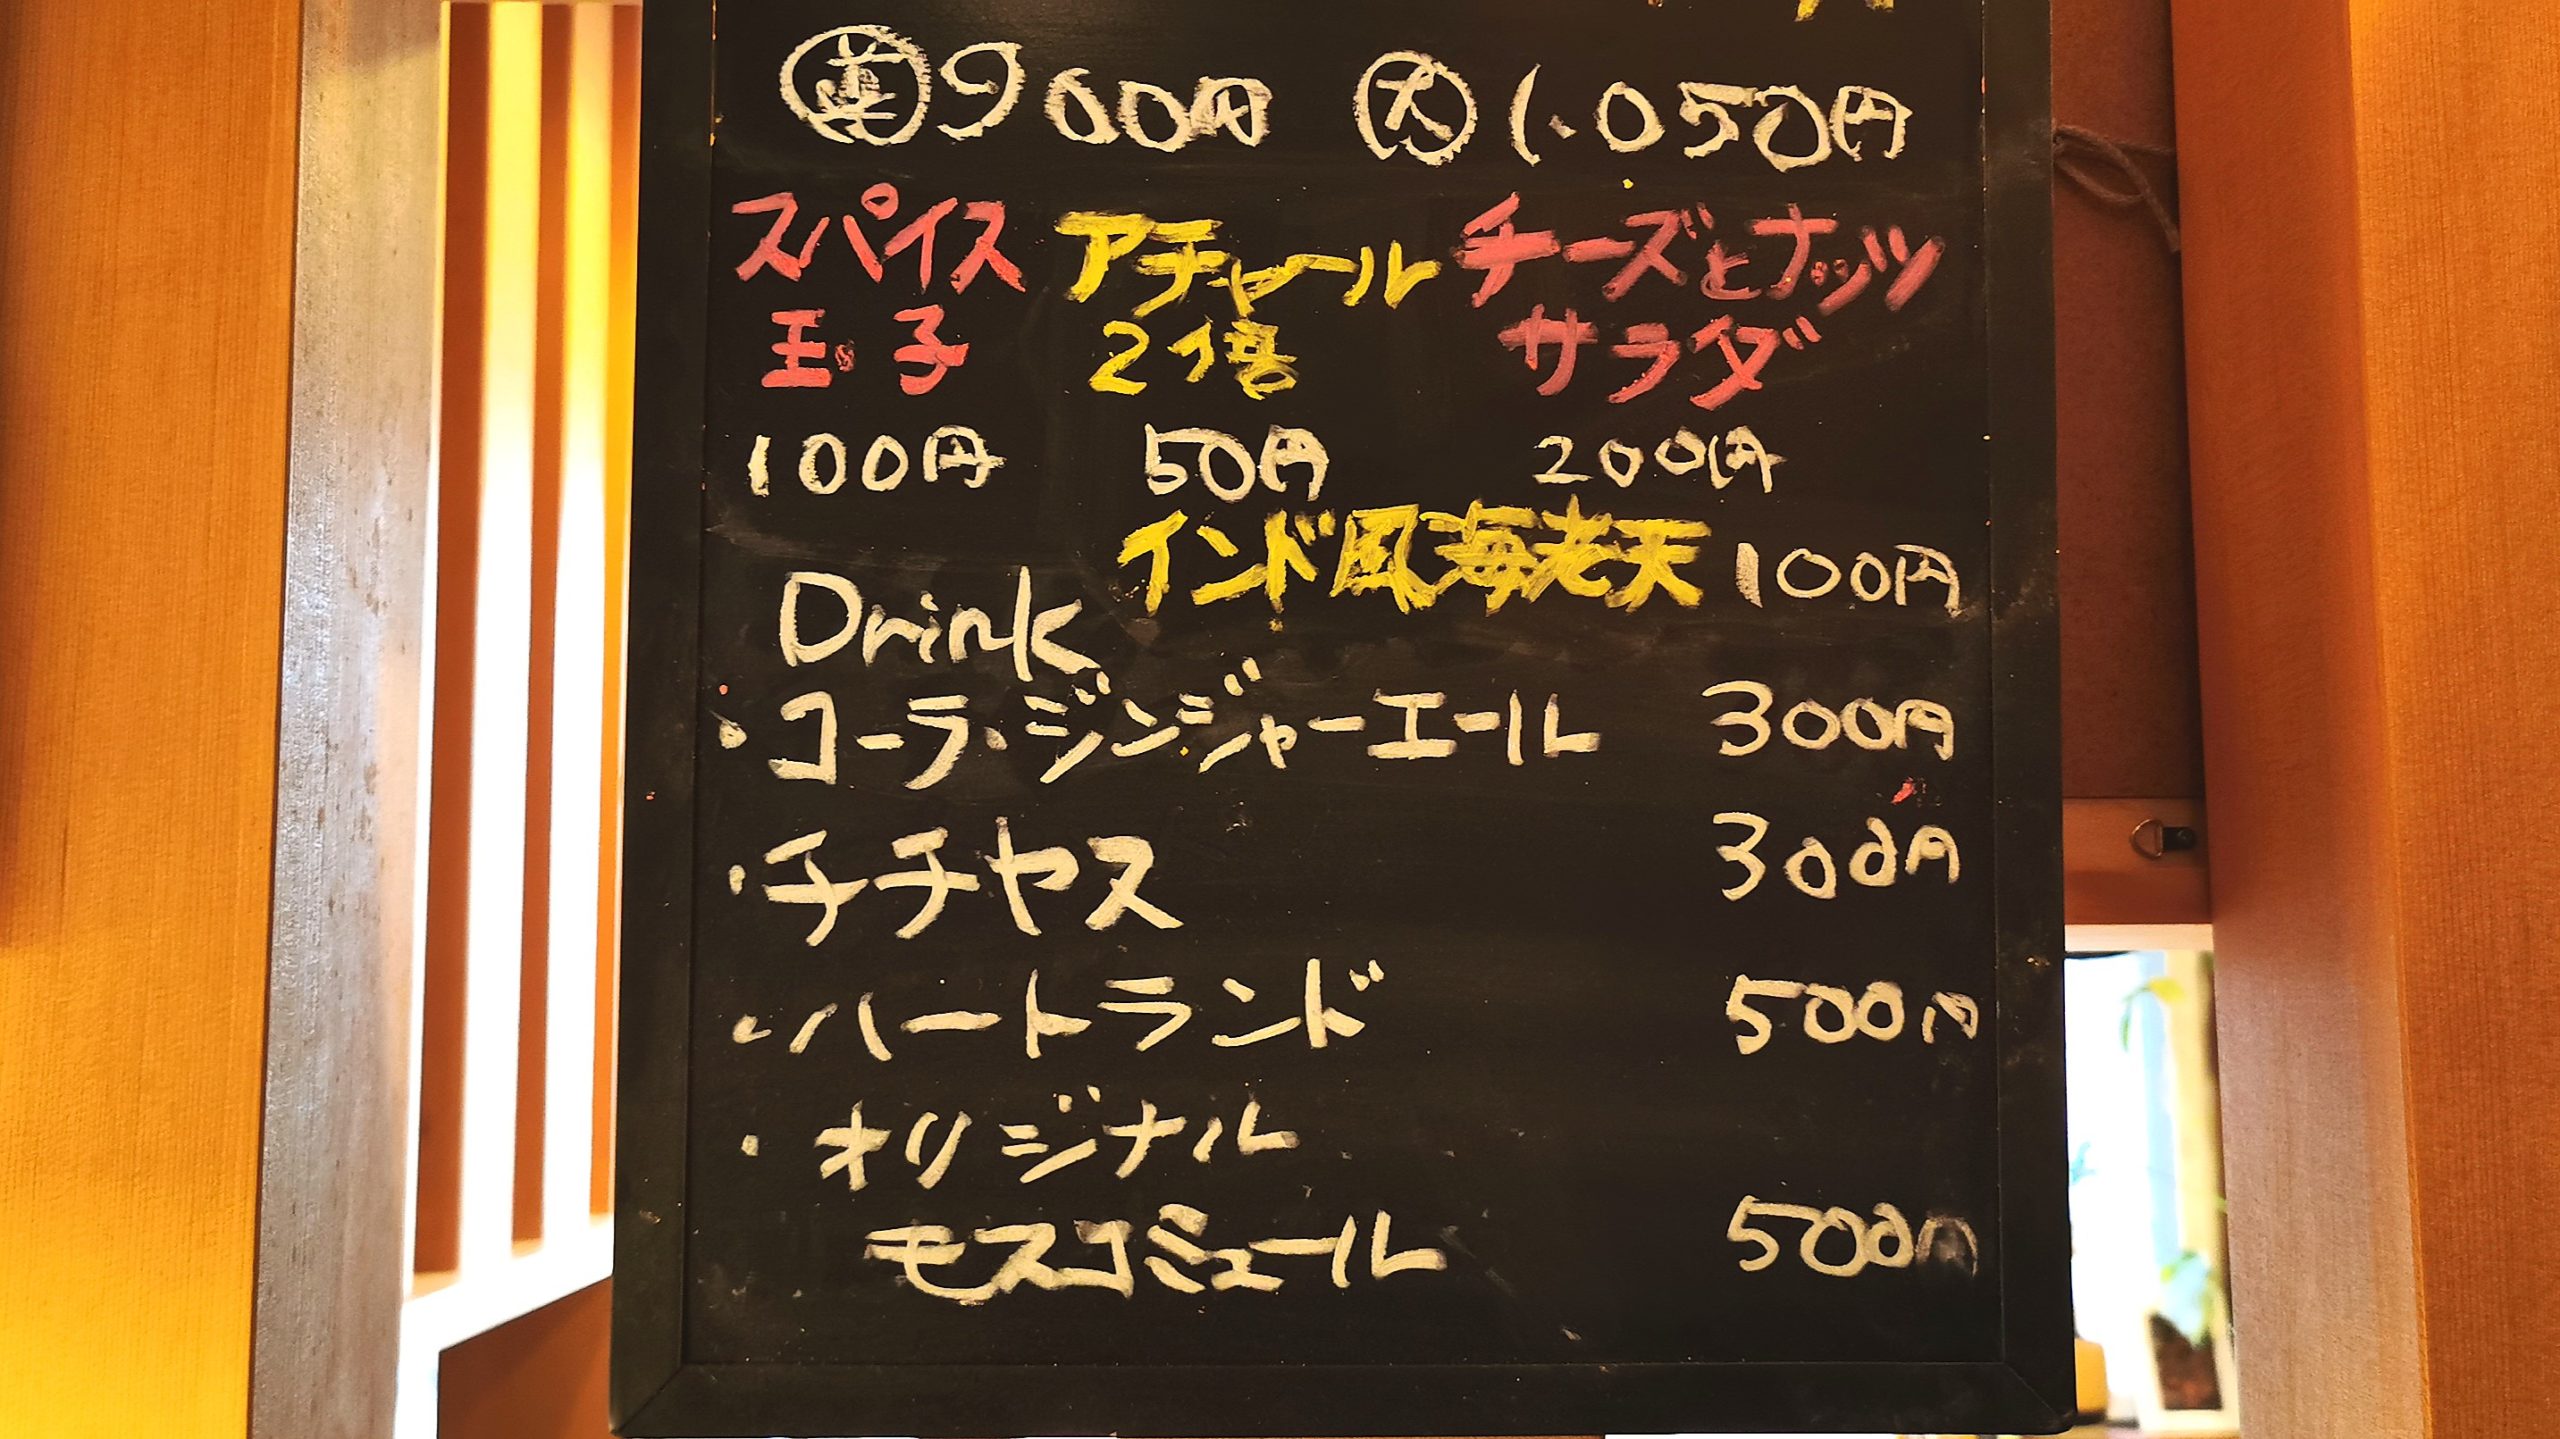 900円 大 1.050円
スパイス アチャール チーズとナッツ
玉子 2倍 サラダ
100円 50円 200円
インド風海老天 100円
Drink
・コーラ・ジンジャーエール 300円
・チチヤス 300円
・ハートランド 500円
・オリジナル
モスコミュール 500円